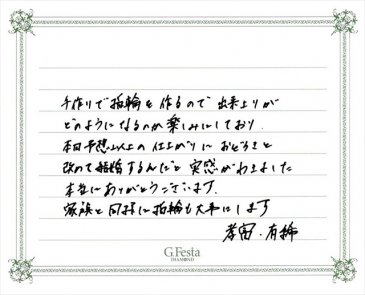 手作りで指輪を作るので出来上りが
どのようになるのか楽しみにしており、
本日予想以上の仕上がりにおどろきと
改めて結婚するんだと実感がわきました
本当にありがとうございます。
家族と同様に指輪も大事にします
孝宙・有希
G.Festa
DIAMOND